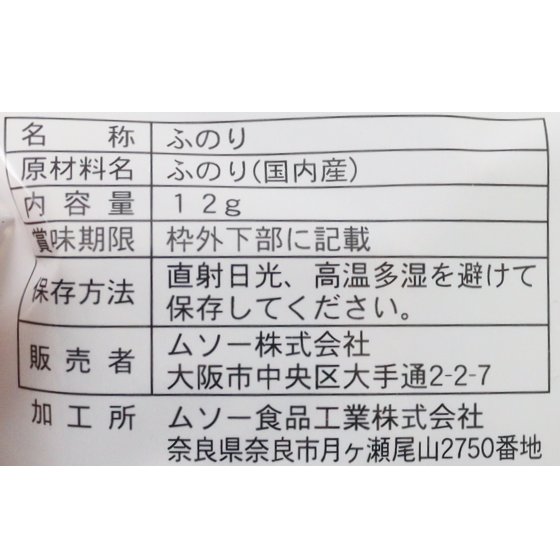 名称 ふのり
原材料名 ふのり(国内産)
内容量 12g
賞味期限 枠外下部に記載
保存方法 直射日光、高温多湿を避けて
保存してください。
販売者 ムソー株式会社
大阪市中央区大手通2-2-7
加工所 ムソー食品工業株式会社
奈良県奈良市月ヶ瀬尾山2750番地